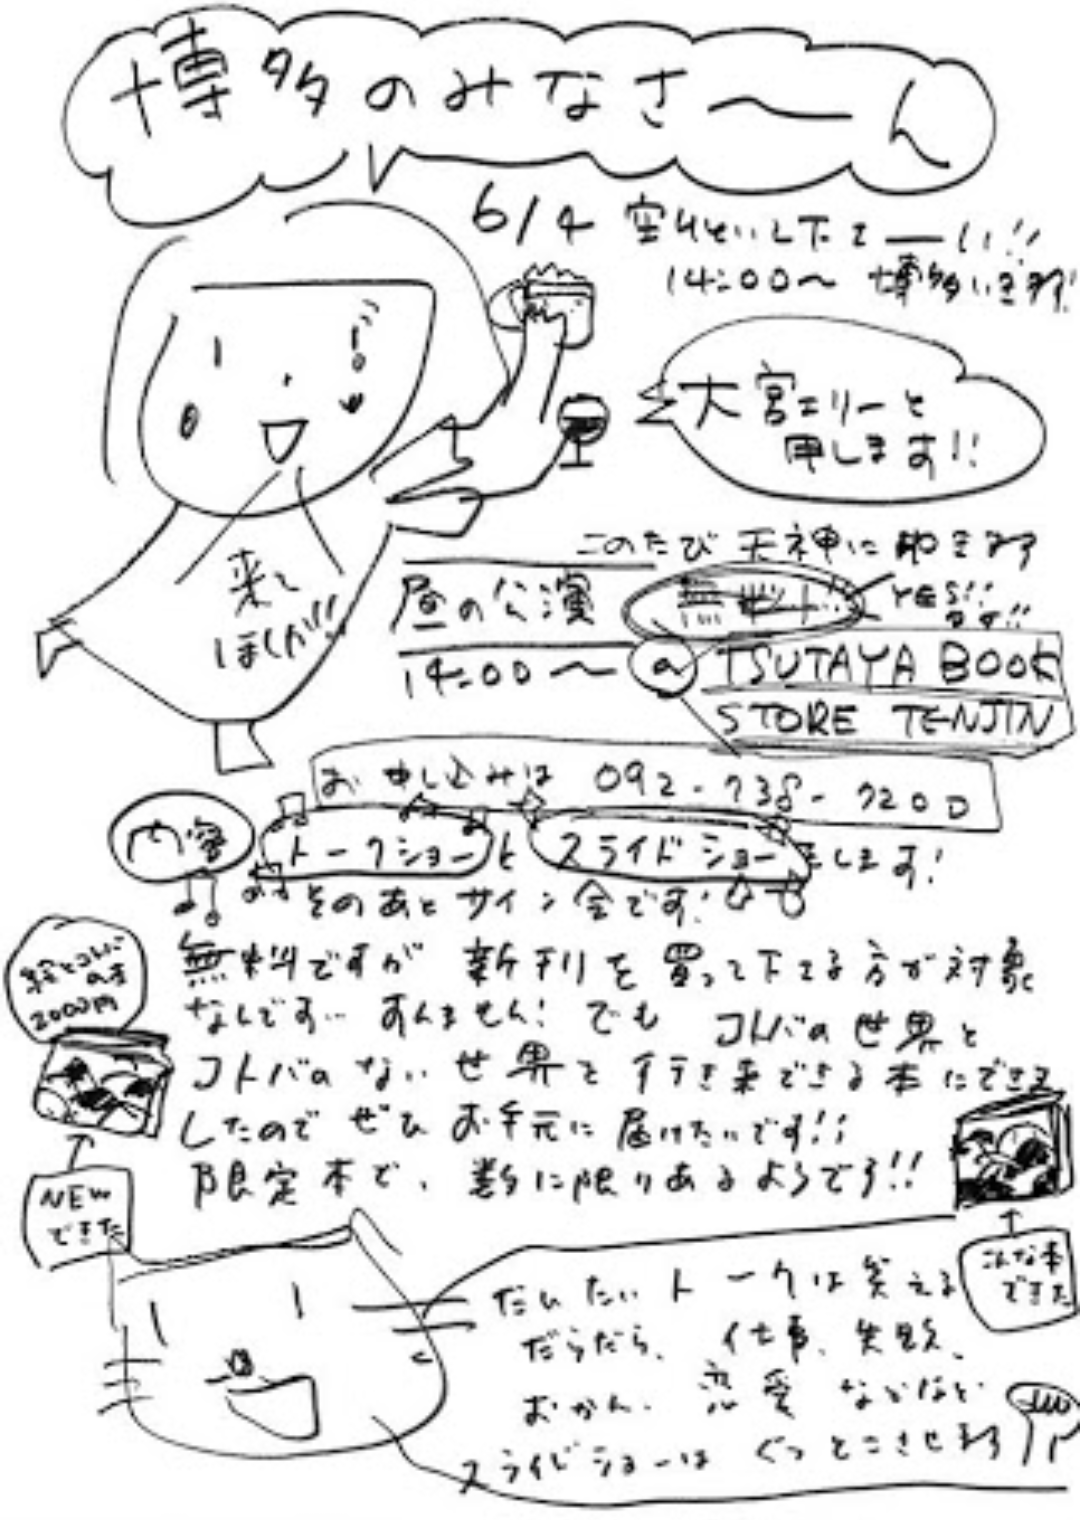 博多のみなさ〜ん
6/4 空けといて下さーい!!
14:00〜 博多いきます!
大宮エリーと
申します!!
このたび 天神に 叩きます
来て
ほしい!!
昼の公演 無料!! YES!!
14:00〜 @ TSUTAYA BOOK
STORE TENJIN
お申し込みは 092-738-7200
内容 トークショーと スライドショーをします!
そのあと サイン会です!
絵とコトバ
の本
2000円
無料ですが 新刊を 買って下さる方が対象
なんです… すんません! でも コトバの世界と
コトバのない世界を行き来できる本にできま
したので ぜひ お手元に 届けたいです!!
限定本で、数に限りあるようです!!
NEW
できた
こんな本
できた
だいたい トークは笑える
だらだら、仕事、失敗、
おかん、恋愛 などなど
スライドショーは ぐっとこさせます